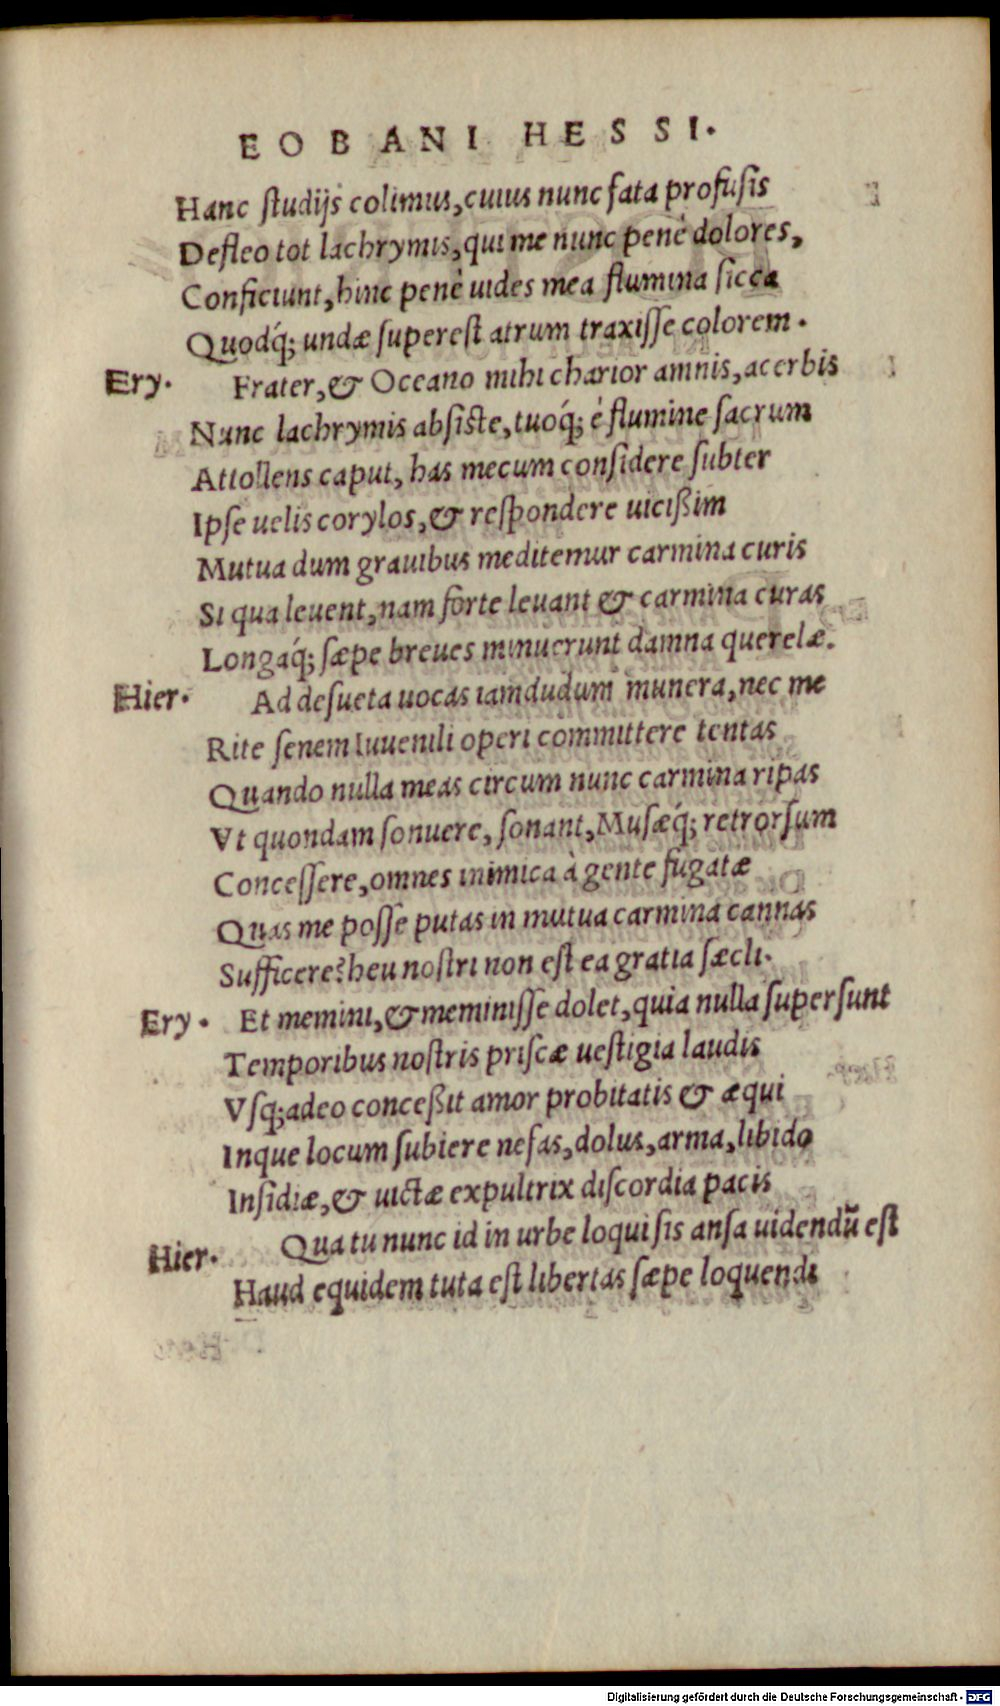 EOBANI HESSI.
Hanc ſtudijs colimus, cuius nunc fata profuſis
Defleo tot lachrymis, qui me nunc penè dolores,
Conficiunt, hinc penè uides mea flumina ſicca
Quodq́; undæ ſupereſt atrum traxiſſe colorem.
Ery. Frater, & Oceano mihi charior amnis, acerbis
Nunc lachrymis abſiſte, tuoq́; è flumine ſacrum
Attollens caput, has mecum conſidere ſubter
Ipſe uelis corylos, & reſpondere uicißim
Mutua dum grauibus meditemur carmina curis
Si qua leuent, nam forte leuant & carmina curas
Longaq́; ſæpe breues minuerunt damna querelæ.
Hier. Ad deſueta uocas iamdudum munera, nec me
Rite ſenem Iuuenili operi committere tentas
Quando nulla meas circum nunc carmina ripas
Vt quondam ſonuere, ſonant, Muſæq́; retrorſum
Conceſſere, omnes inimica à gente fugatæ
Quas me poſſe putas in mutua carmina cannas
Sufficere? heu noſtri non eſt ea gratia ſæcli.
Ery. Et memini, & meminiſſe dolet, quia nulla ſuperſunt
Temporibus noſtris priſcæ ueſtigia laudis
Vſq; adeo conceßit amor probitatis & æqui
Inque locum ſubiere nefas, dolus, arma, libido
Inſidiæ, & uictæ expultrix diſcordia pacis
Hier. Qua tu nunc id in urbe loqui ſis anſa uidendũ eſt
Haud equidem tuta eſt libertas ſæpe loquendi
Digitalisierung gefördert durch die Deutsche Forschungsgemeinschaft - DFG